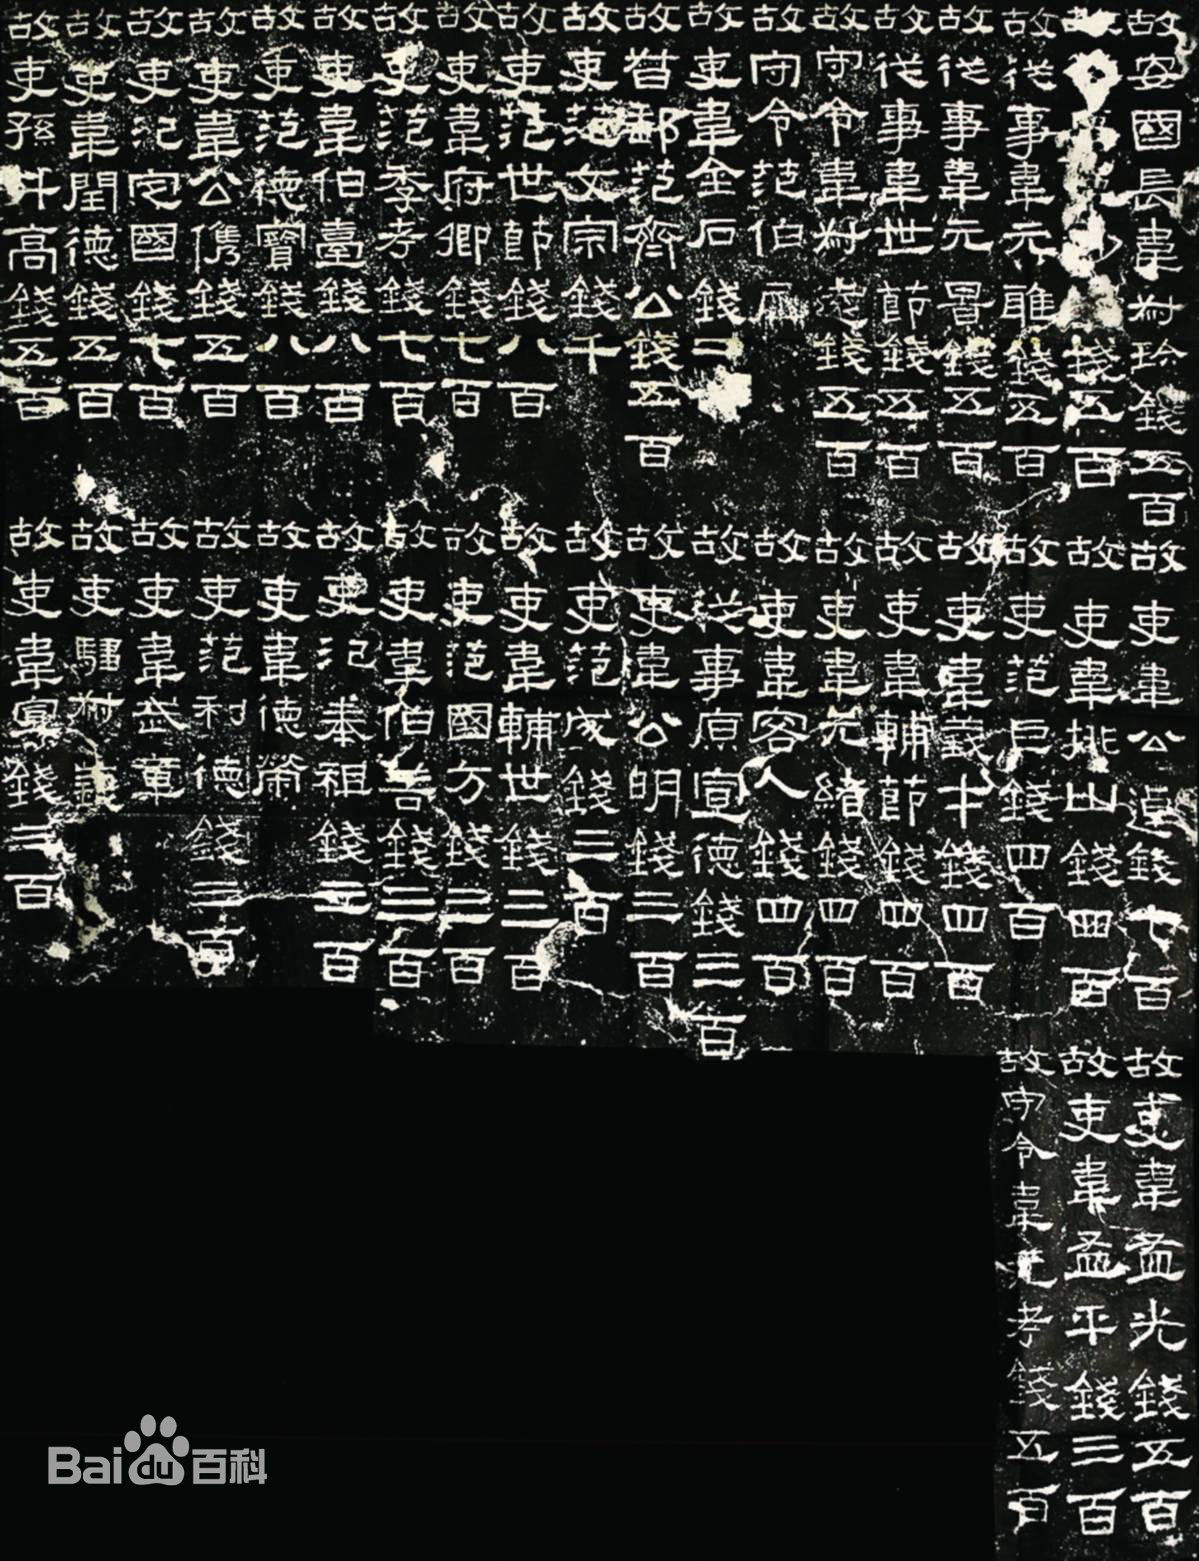 故安國長韋叔珍錢五百
故錢五百
故從事韋元雕錢五百
故從事韋元景錢五百
故從事韋世節錢五百
故守令韋叔遠錢五百
故守令范伯犀
故吏韋金石錢二
故督郵范齊公錢五百
故吏范文宗錢千
故吏范世節錢八百
故吏韋府卿錢七百
故吏范季考錢七百
故吏韋伯臺錢八百
故吏范德寶錢八百
故吏韋公儁錢五百
故吏氾定國錢七百
故吏韋閏德錢五百
故吏孫升高錢五百
故吏韋公逴錢七百
故吏韋排山錢四百
故吏范巨錢四百
故吏韋義才錢四百
故吏韋輔節錢四百
故吏韋元緒錢四百
故吏韋容人錢四百
故從事原宣德錢三百
故吏韋公明錢三百
故吏范成錢三百
故吏韋輔世錢三百
故吏范國方錢三百
故吏韋伯善錢三百
故吏氾奉祖錢三百
故吏韋德榮
故吏范利德錢三百
故吏韋武章
故吏騶叔義
故吏韋宣錢三百
故吏韋孟光錢五百
故吏韋孟平錢三百
故守令韋元考錢五百
Baidu百科